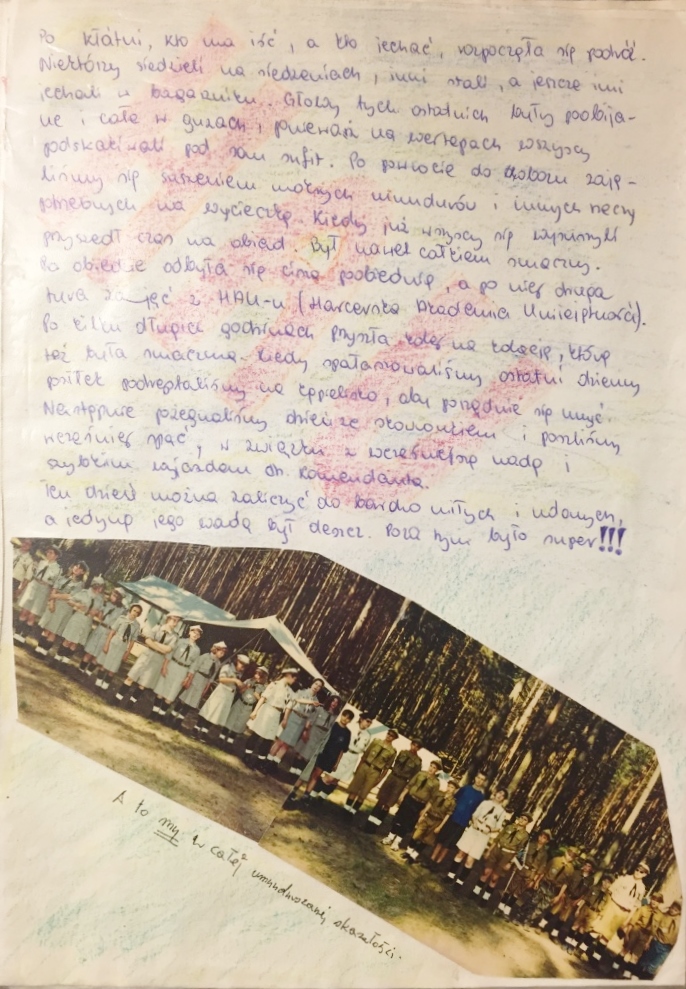 Po kłótni, kto ma iść, a kto jechać, rozpoczęła się podróż.
Niektórzy siedzieli na siedzeniach, inni stali, a jeszcze inni
jechali w bagażniku. Głowy tych ostatnich były poobija-
ne i całe w guzach, ponieważ na wertepach wszyscy
podskakiwali pod sam sufit. Po powrocie do obozu zaję-
liśmy się suszeniem mokrych mundurów i innych rzeczy
potrzebnych na wycieczkę. Kiedy już wszyscy się wysuszyli
przyszedł czas na obiad. Był nawet całkiem smaczny.
Po obiedzie odbyła się cisza pobiednia, a po niej druga
tura zajęć z HAU-u (Harcerska Akademia Umiejętności).
Po kilku długich godzinach przyszła kolej na kolację, która
też była smaczna. Kiedy spałaszowaliśmy ostatni dzienny
posiłek podreptaliśmy na kąpielisko, aby porządnie się umyć.
Następnie pożegnaliśmy dzień ze słowonkiem i poszliśmy
wcześniej spać, w związku z wcześniejszą wadą i
szybkim wyjazdem dh. Komendanta.
Ten dzień można zaliczyć do bardzo miłych i udanych,
a jedyną jego wadą był deszcz. Poza tym było super!!!
A to my w całej umundurowanej okazałości.